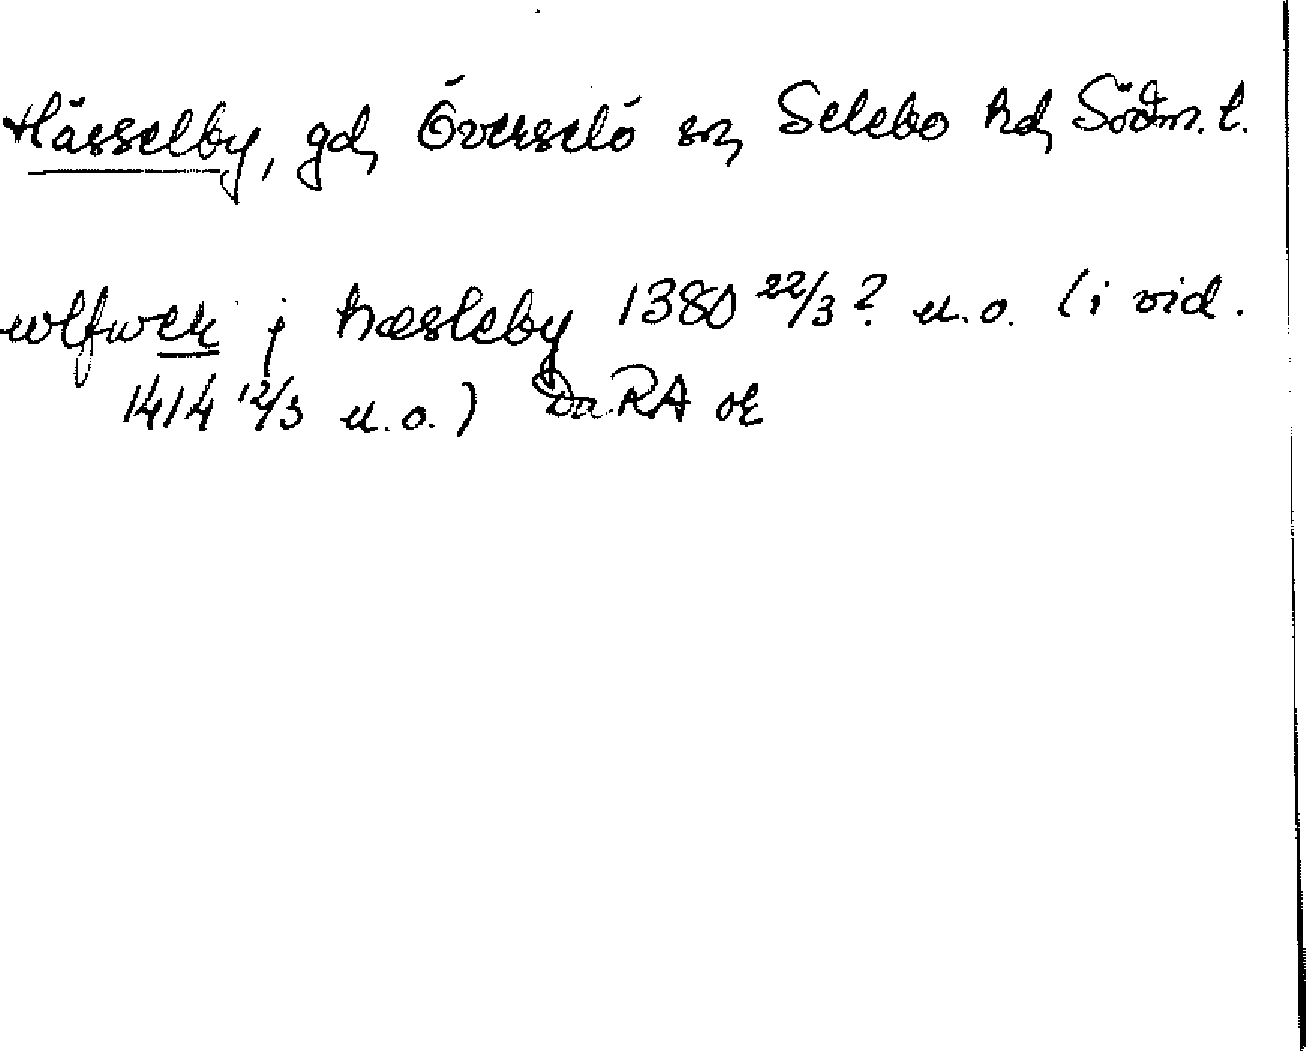 Hässelby, gd, Överselö sn, Selebo hd, Södm. l.
wlfwer j hæsleby 1380 22/3? u.o. (i vid.
1414 12/3 u.o.) Da RA or